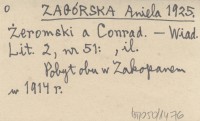 o ZAGÓRSKA Aniela 1925.
Żeromski a Conrad. — Wiad.
Lit. 2, nr 51: , il.
Pobyt obu w Zakopanem
w 1914 r.